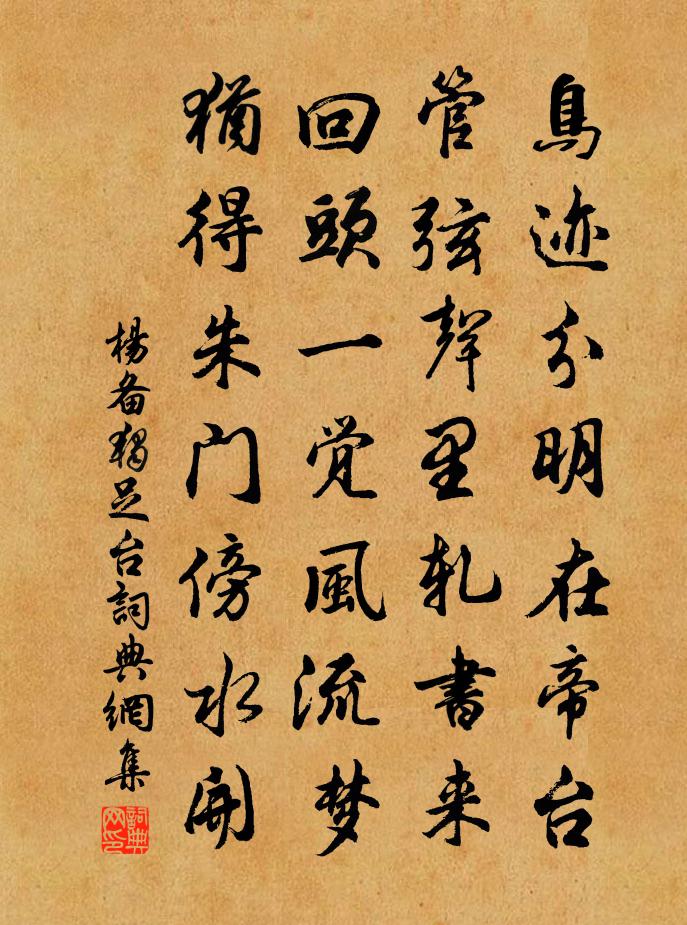 鳥迹分明在帝台
管弦聲里轧書来
回頭一觉風流梦
猶得朱门傍水開
楊备獨足台詞典網集
詞典网印